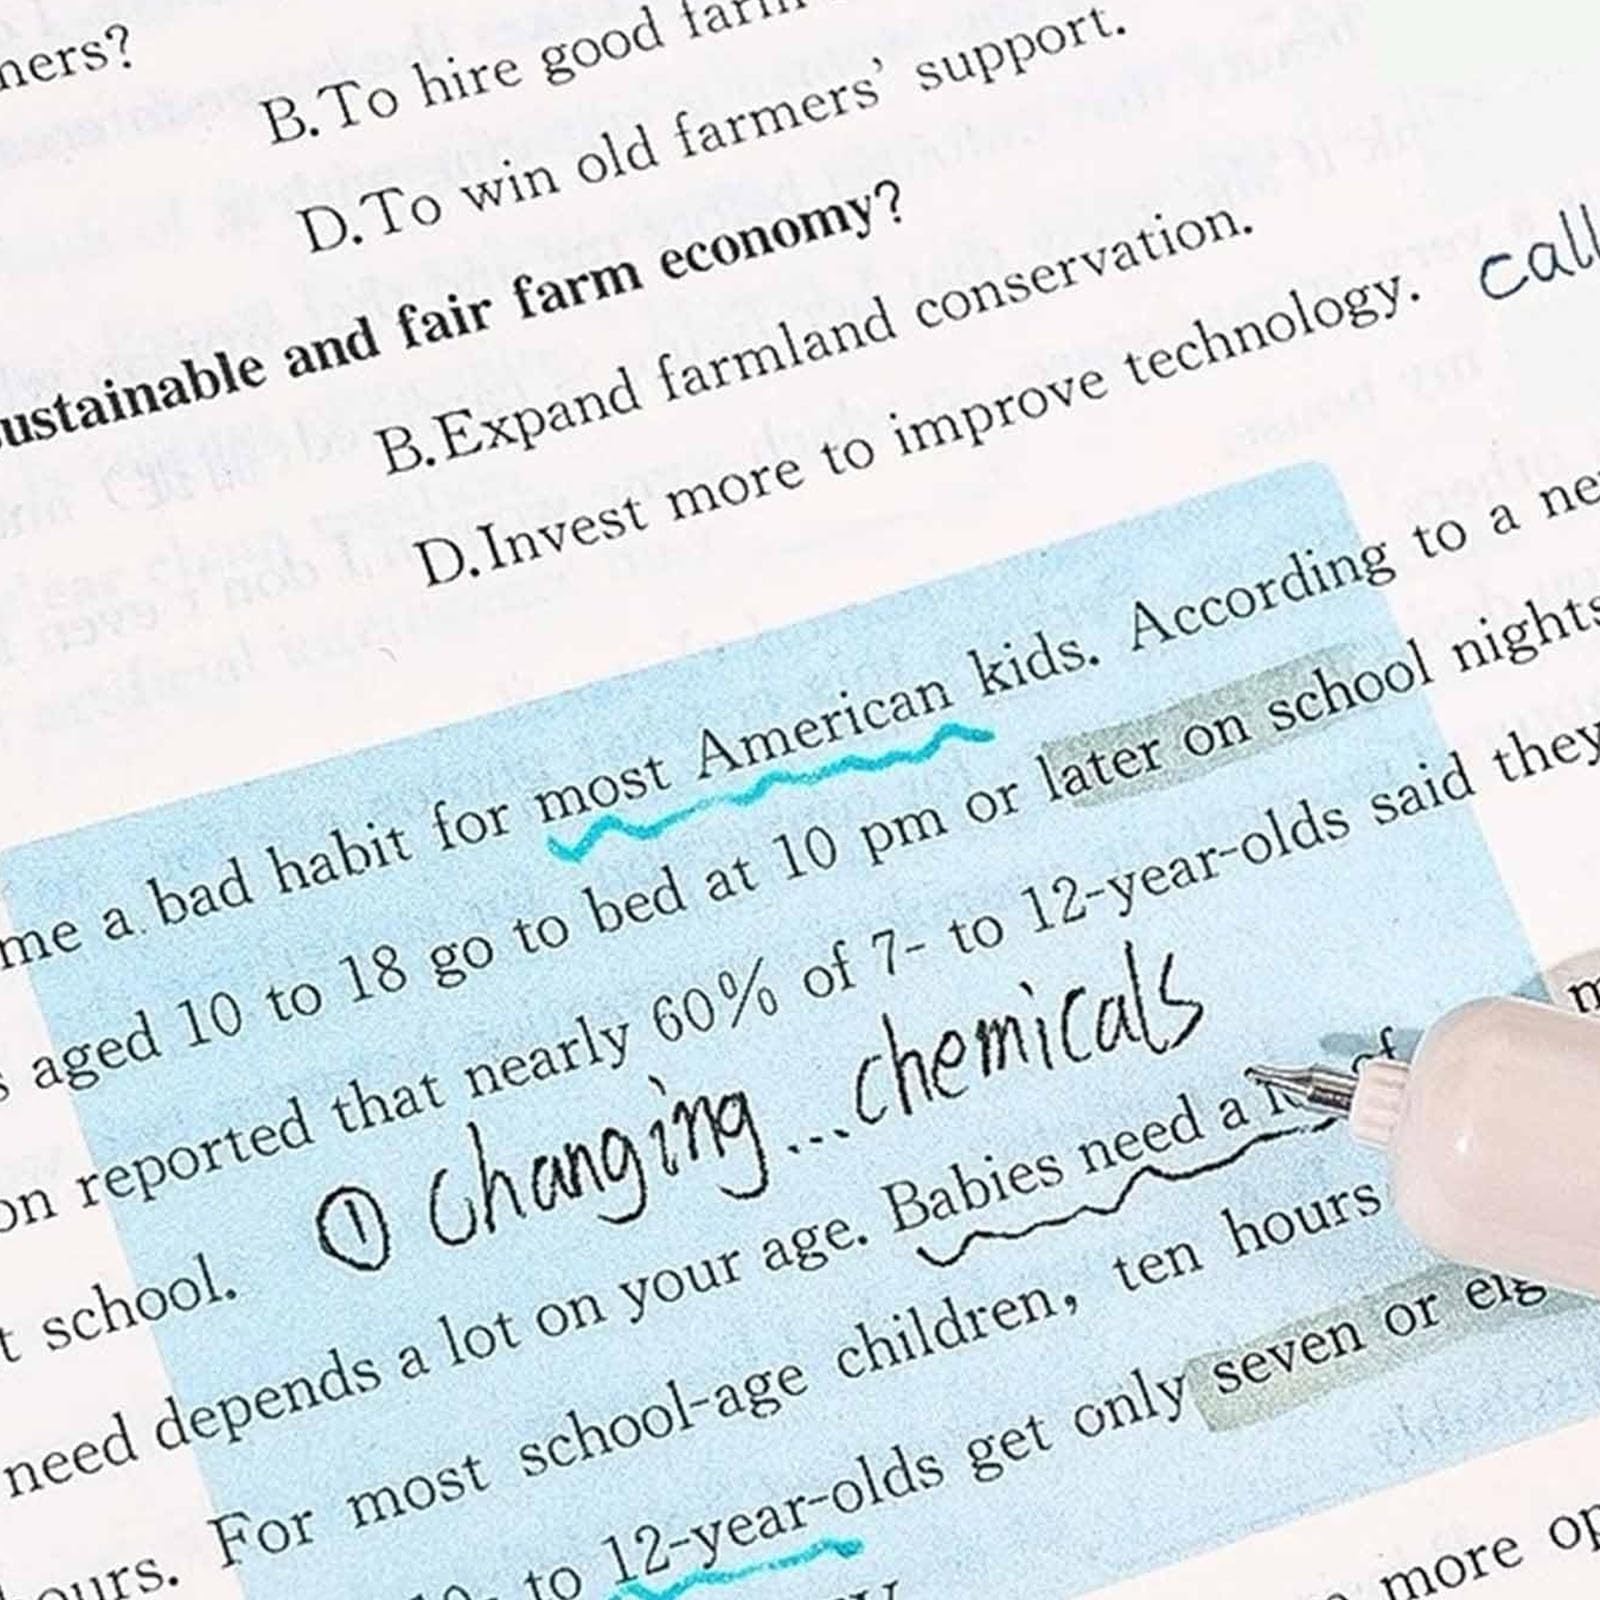 B.To hire good
D.To win old farmers' support.
and fair farm economy?
B.Expand farmland conservation.
D.Invest more to improve technology.
call
me a bad habit for most American kids. According to a
aged 10 to 18 go to bed at 10 pm or later on school nights
on reported that nearly 60% of 7- to 12-year-olds said they
① Changing...chemicals
school.
need depends a lot on your age. Babies need a
For most school-age children, ten hours
to 12-year-olds get only seven or
more